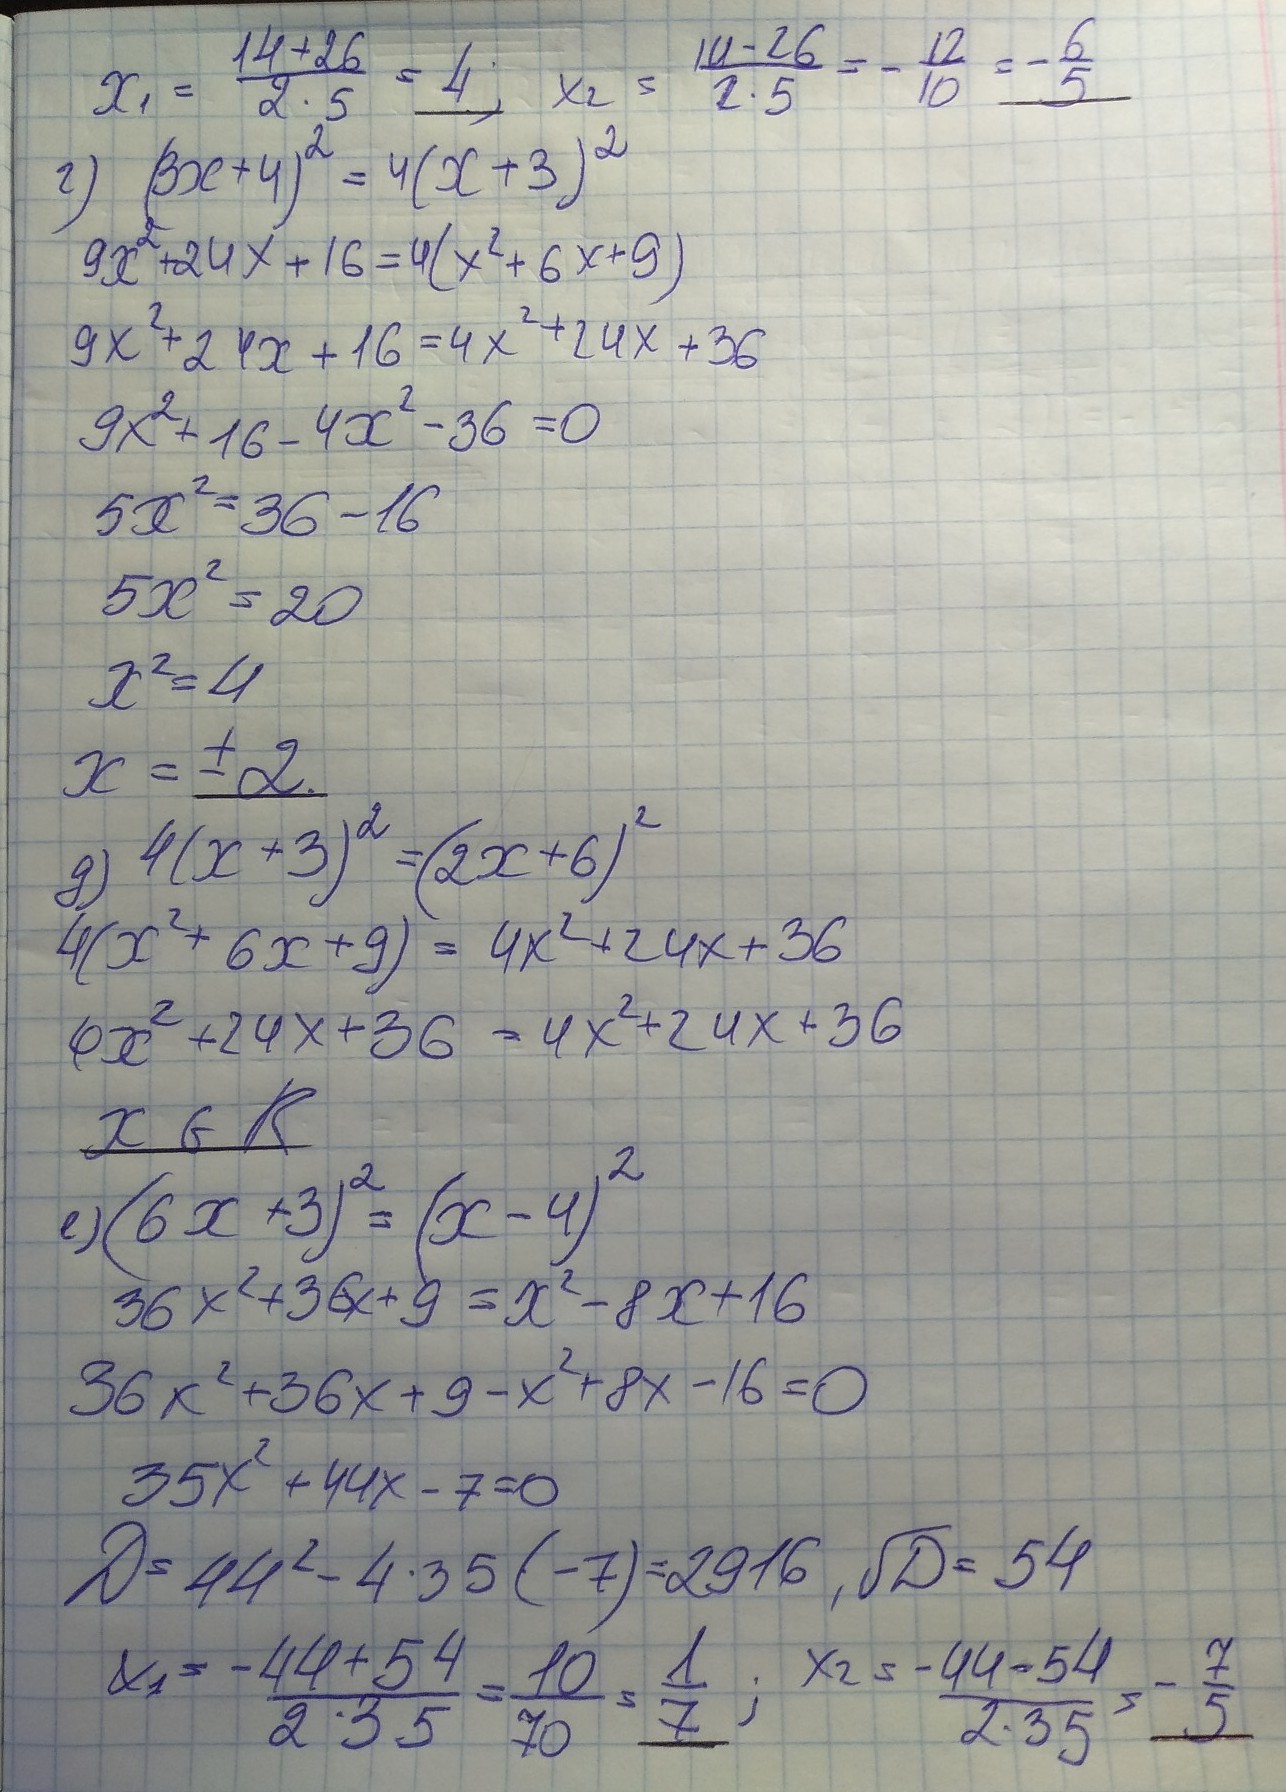 x₁ = (14+26)/(2·5) = 4; x₂ = (14-26)/(2·5) = -12/10 = -6/5
г) (3x+4)² = 4(x+3)²
9x²+24x+16=4(x²+6x+9)
9x²+24x+16=4x²+24x+36
9x²+16-4x²-36=0
5x²=36-16
5x²=20
x²=4
x=±2.
д) 4(x+3)²=(2x+6)²
4(x²+6x+9)=4x²+24x+36
4x²+24x+36=4x²+24x+36
x ∈ R
е) (6x+3)²=(x-4)²
36x²+36x+9=x²-8x+16
36x²+36x+9-x²+8x-16=0
35x²+44x-7=0
D=44²-4·35(-7)=2916, √D=54
x₁=(-44+54)/(2·35)=10/70=1/7; x₂=(-44-54)/(2·35)=-7/5